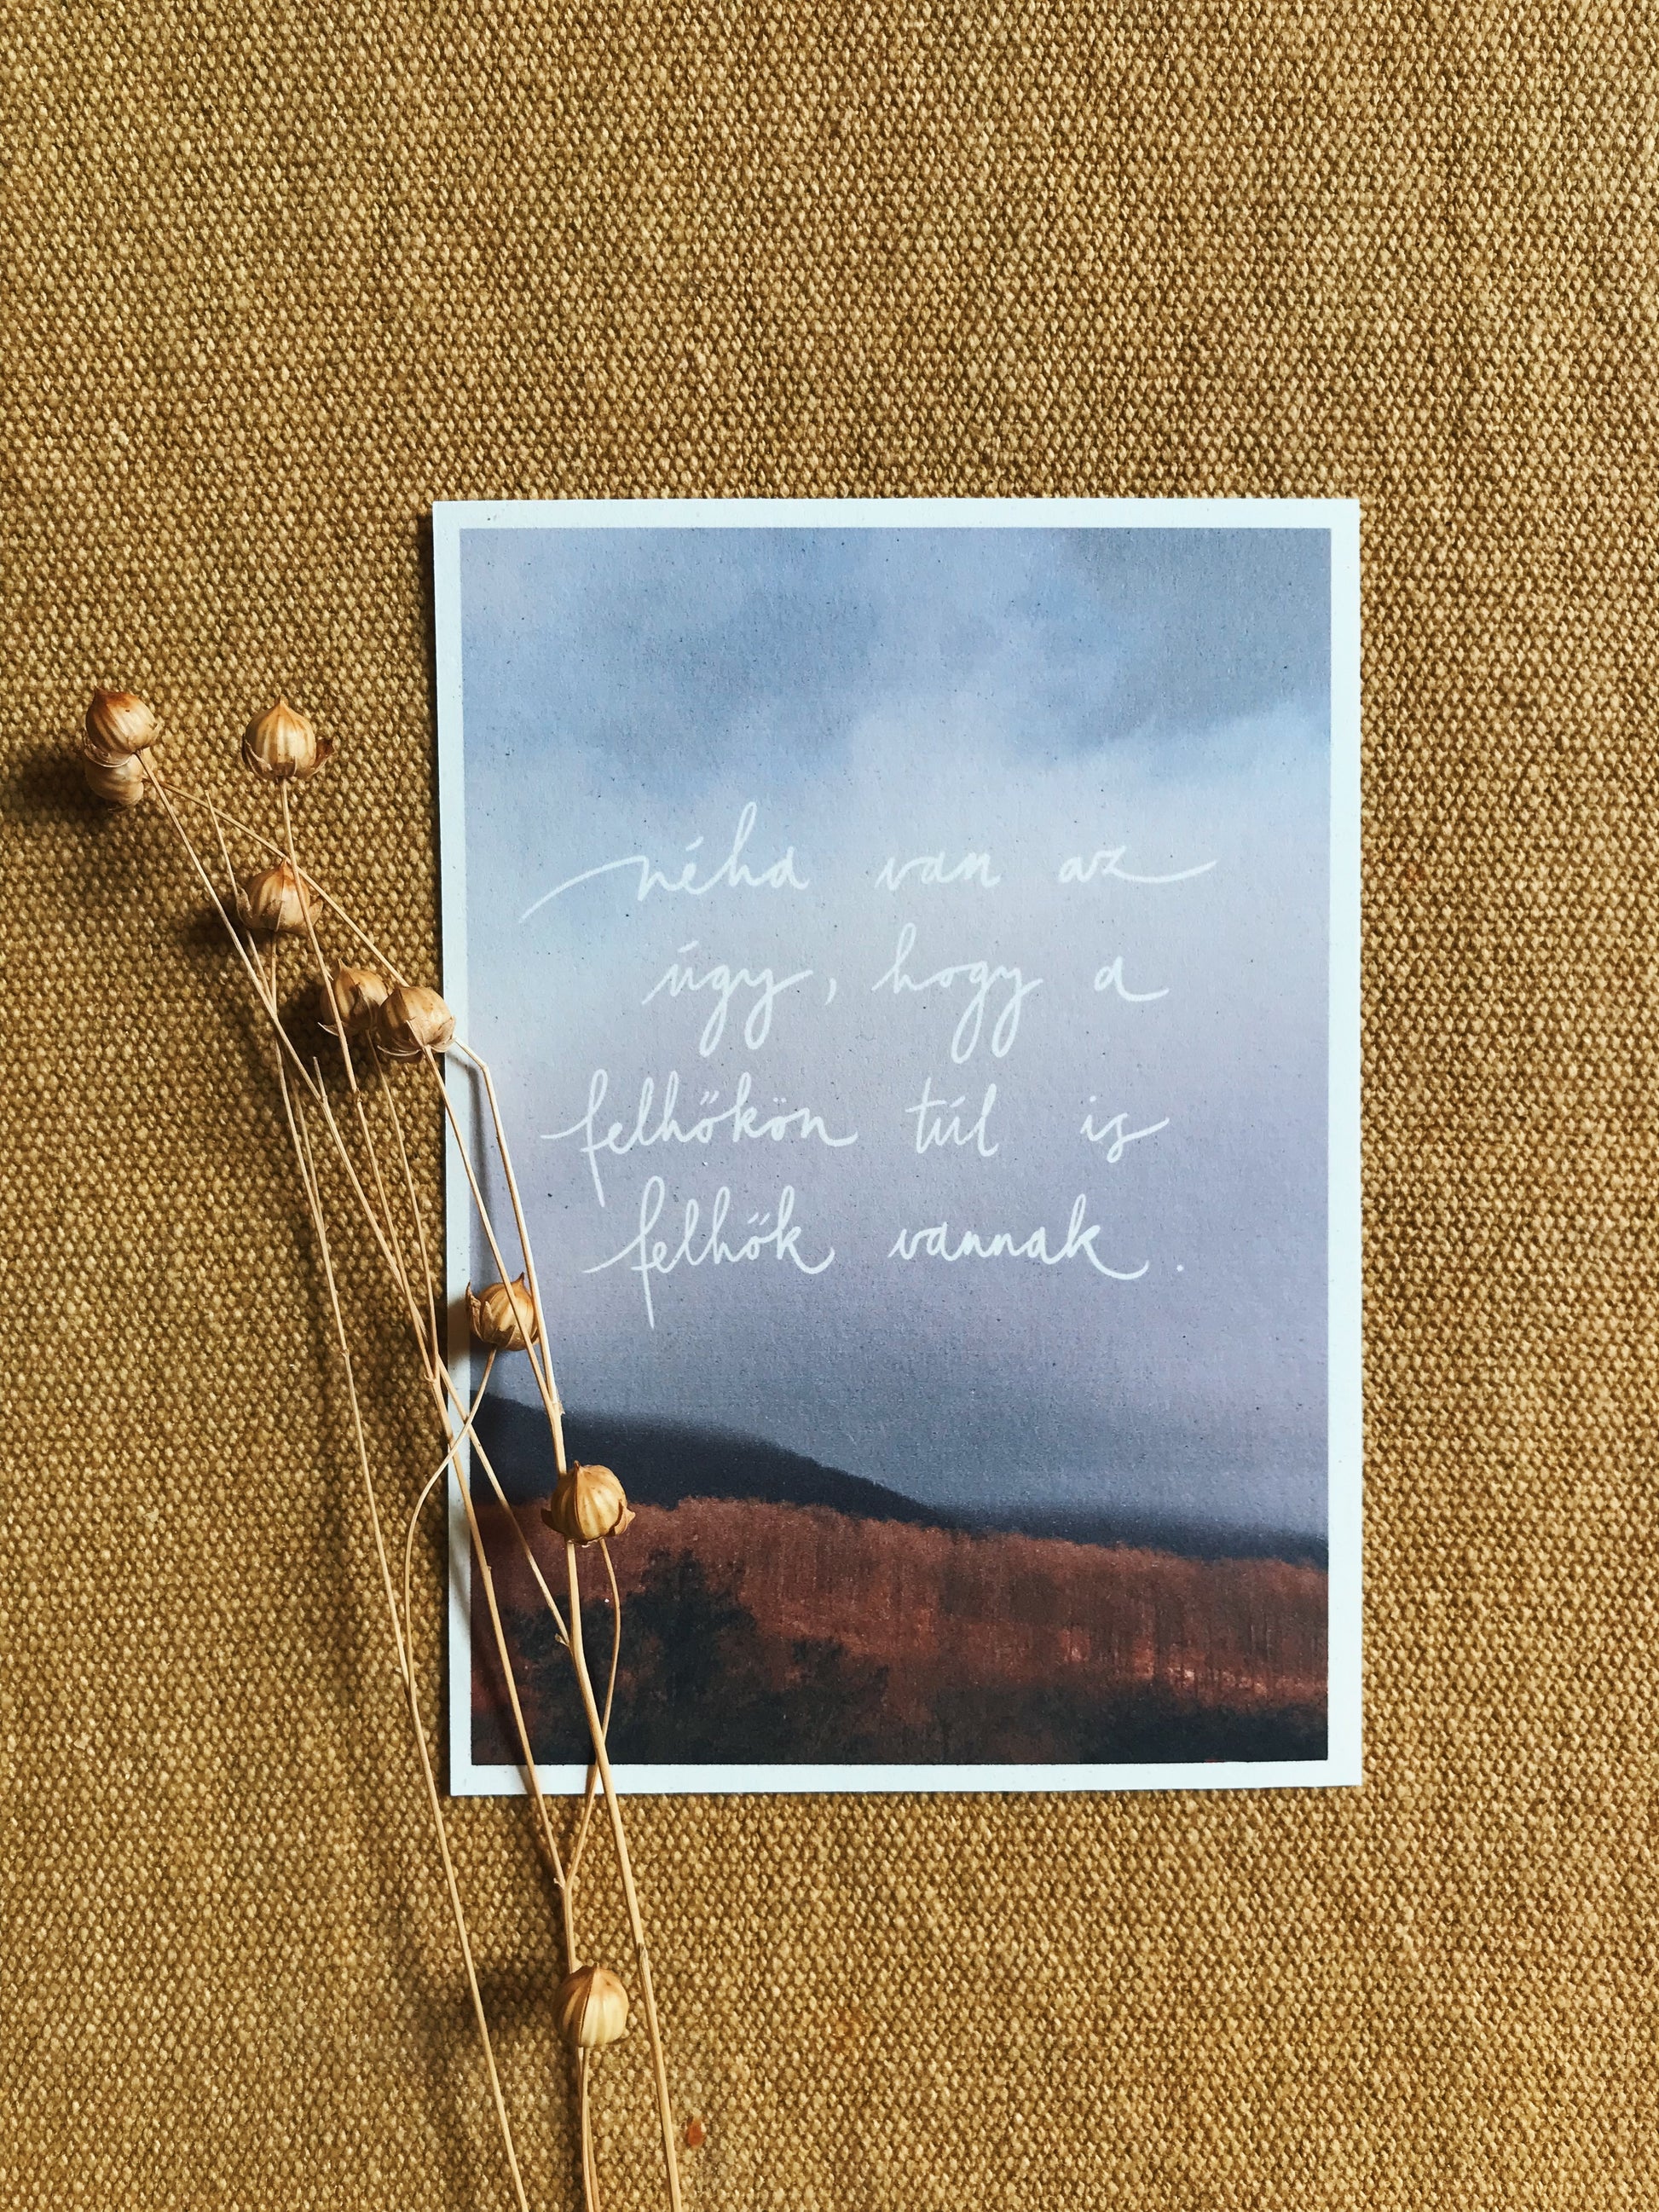 néha van az
úgy, hogy a
felhőkön túl is
felhők vannak.